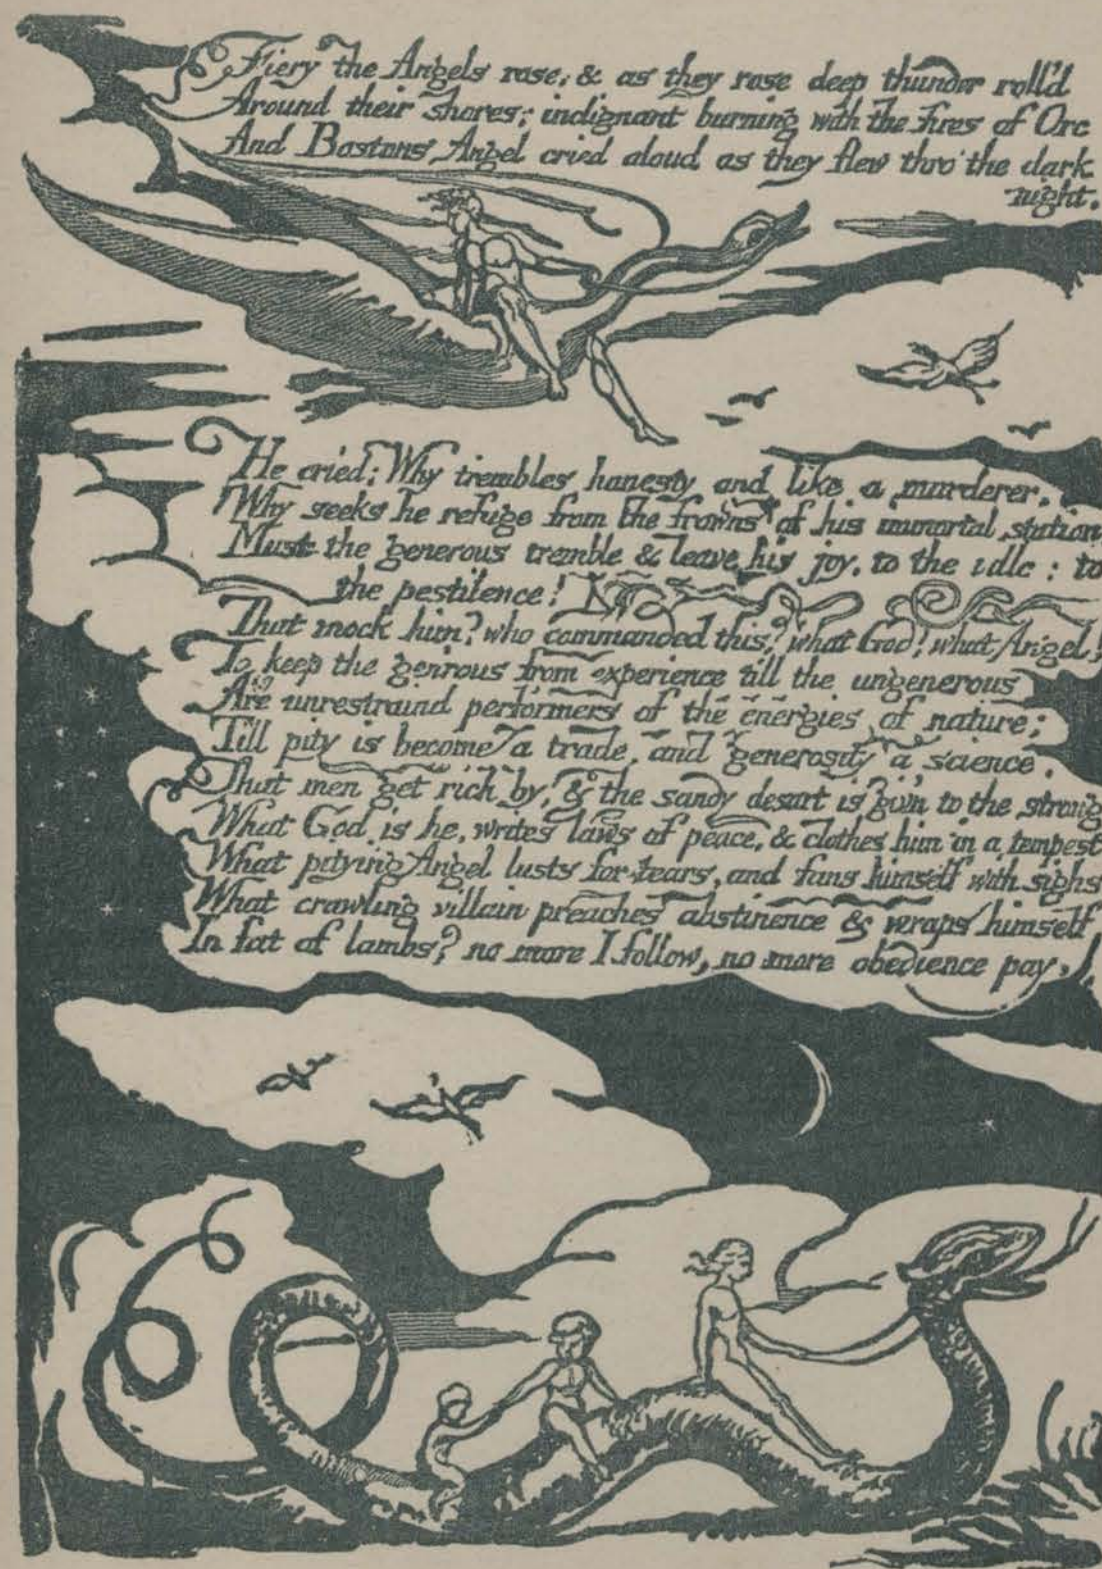 Fiery the Angels rose, & as they rose deep thunder roll'd
Around their shores; indignant burning with the fires of Orc
And Bostons Angel cried aloud as they flew thro' the dark
night.
He cried: Why trembles honesty and like a murderer,
Why seeks he refuge from the frowns of his immortal station
Must the generous tremble & leave his joy, to the idle: to
the pestilence!
That mock him? who commanded this? what God! what Angel!
To keep the gen'rous from experience till the ungenerous
Are unrestraind performers of the energies of nature;
Till pity is become a trade, and generosity a science,
That men get rich by, & the sandy desart is giv'n to the strong
What God is he, writes laws of peace, & clothes him in a tempest
What pitying Angel lusts for tears, and fans himself with sighs
What crawling villain preaches abstinence & wraps himself
In fat of lambs? no more I follow, no more obedience pay,